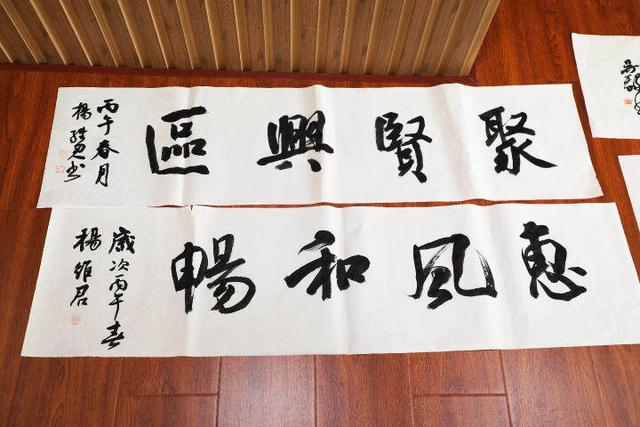 聚賢興區
丙午春月
楊 書
惠風和暢
歲次丙午春
楊維君